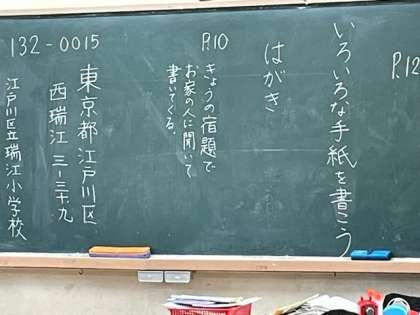 P.12
いろいろな手紙を書こう
はがき
P.10
きょうの宿題で
お家の人に聞いて
書いてくる。
132-0015
東京都江戸川区
西瑞江 三-三十九
江戸川区立瑞江小学校